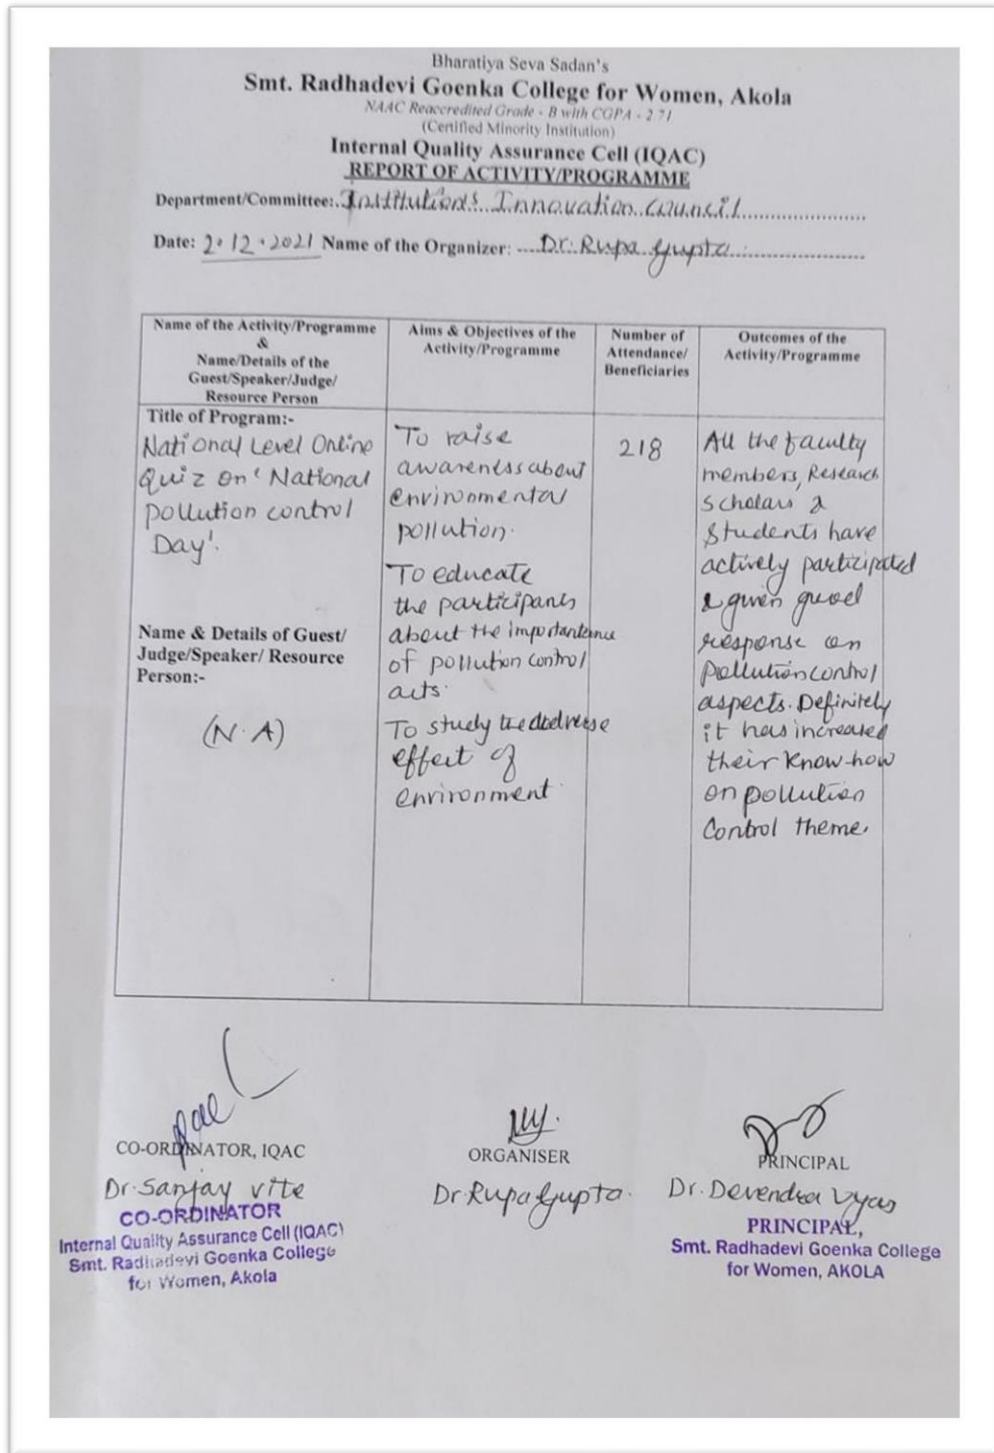 Bharatiya Seva Sadan's
Smt. Radhadevi Goenka College for Women, Akola
NAAC Reaccredited Grade - B with CGPA - 2.71
(Certified Minority Institution)
Internal Quality Assurance Cell (IQAC)
REPORT OF ACTIVITY/PROGRAMME
Department/Committee: Institution's Innovation Council
Date: 2.12.2021 Name of the Organizer: Dr. Rupa Gupta
Name of the Activity/Programme
&
Name/Details of the
Guest/Speaker/Judge/
Resource Person
Aims & Objectives of the
Activity/Programme
Number of
Attendance/
Beneficiaries
Outcomes of the
Activity/Programme
Title of Program:-
National Level Online
Quiz on 'National
pollution control
Day'.
Name & Details of Guest/
Judge/Speaker/ Resource
Person:-
(N.A)
To raise
awareness about
environmental
pollution.
To educate
the participants
about the
of pollution control
acts.
To study the
effect of
environment.
218
All the faculty
members, Research
Scholars &
Students have
actively participated
& given good
response on
pollution control
aspects. Definitely
it has increased
their know-how
on pollution
control theme.
CO-ORDINATOR, IQAC
Dr. Sanjay Vite
CO-ORDINATOR
Internal Quality Assurance Cell (IQAC)
Smt. Radhadevi Goenka College
for Women, Akola
ORGANISER
Dr Rupa Gupta.
PRINCIPAL
Dr. Devendra Vyas
PRINCIPAL,
Smt. Radhadevi Goenka College
for Women, AKOLA